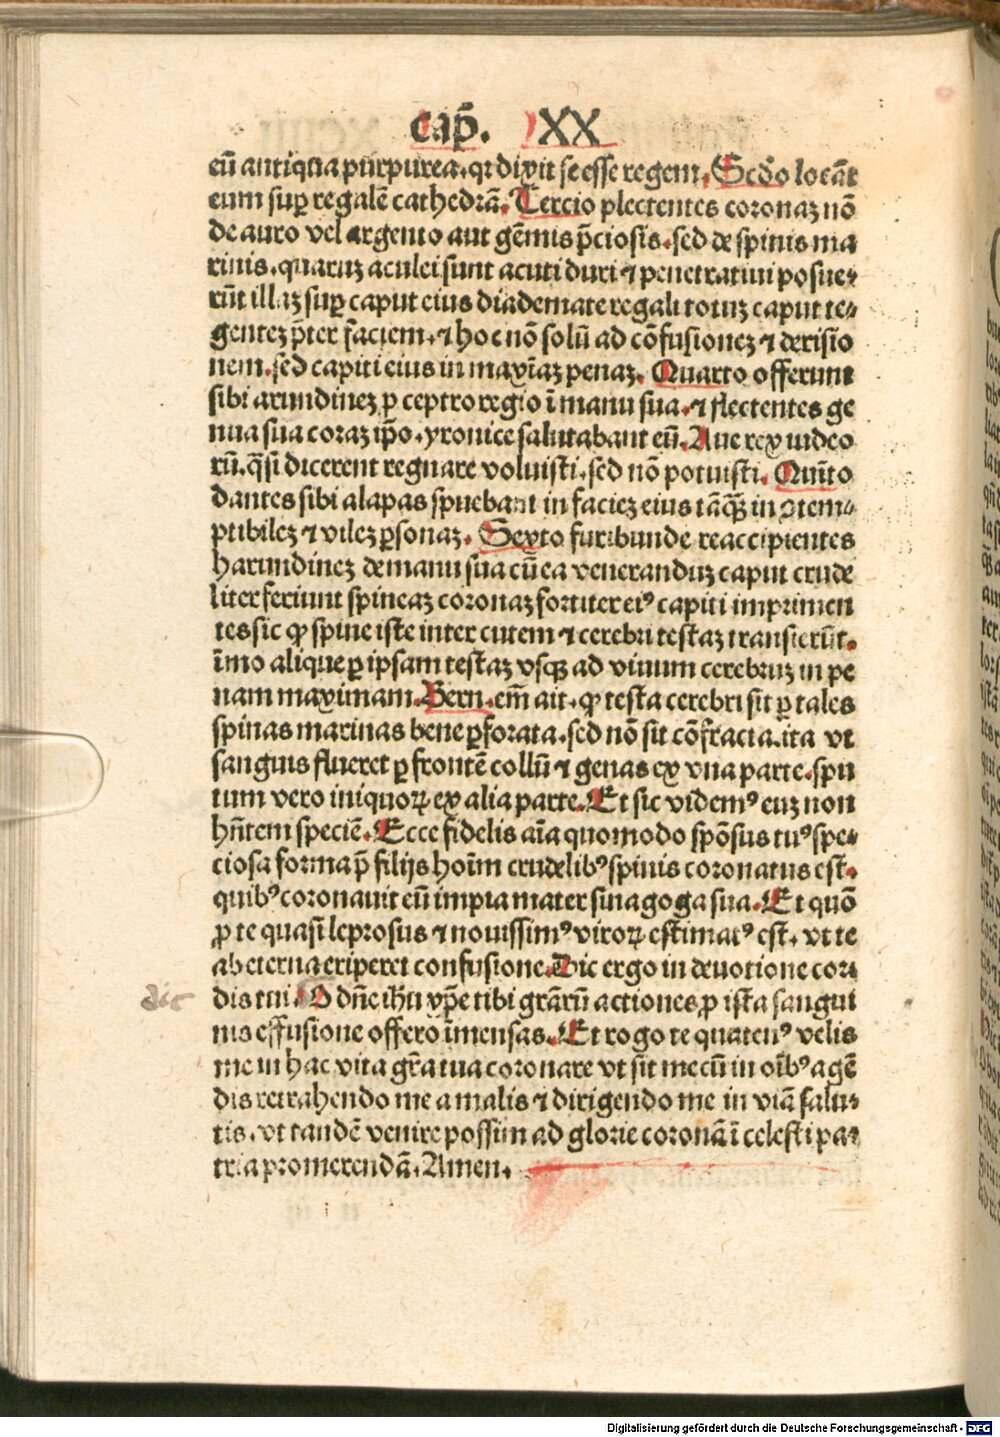 cap̄. XX
eū antiqua purpurea. qꝛ dixit se esse regem. Scd̓o locāt
eum suꝑ regalē cathedrā. Tercio plectentes coronaꝫ nō
de auro vel argento aut gēmis p̄ciosis. sed de spinis ma
rinis. quaruꝫ aculei sunt acuti duri ⁊ penetratiui posue⸗
rūt illaꝫ suꝑ caput eius diademate regali totuꝫ caput te⸗
genteꝫ p̄ter faciem. ⁊ hoc nō solū ad cōfusioneꝫ ⁊ derisio
nem. sed capiti eius in maxīaꝫ penaꝫ. Quarto offerunt
sibi arundineꝫ ꝓ ceptro regio ī manu sua. ⁊ flectentes ge
nua sua coraꝫ ip̄o. yronice salutabant eū. Aue rex iudeo
rū. q̄si dicerent regnare voluisti. sed nō potuisti. Quīto
dantes sibi alapas spuebant in facieꝫ eius tāqꝫ̄ in ꝯtem⸗
ptibileꝫ ⁊ vileꝫ ꝑsonaꝫ. Sexto furibunde reaccipientes
harundineꝫ de manu sua cū ea veneranduꝫ caput crude
liter feriunt spineaꝫ coronaꝫ fortiter eiꝰ capiti imprimen
tes sic ꝙ spine iste inter cutem ⁊ cerebri testaꝫ transierūt.
īmo alique ꝑ ipsam testaꝫ vsqꝫ ad viuum cerebruꝫ in pe
nam maximam. Bern. em̄ ait. ꝙ testa cerebri sit ꝑ tales
spinas marinas bene ꝑforata. sed nō sit cōfracta. ita vt
sanguis flueret ꝑ frontē collū ⁊ genas ex vna parte. spu
tum vero iniquoꝝ ex alia parte. Et sic videmꝰ euꝫ non
hn̄tem speciē. Ecce fidelis aīa quomodo spōsus tuꝰ spe⸗
ciosa forma p̄ filijs hoīm crudelibꝰ spinis coronatus est.
quibꝰ coronauit eū impia mater sinagoga sua. Et quō
ꝓ te quasi leprosus ⁊ nouissimꝰ viroꝝ estimatꝰ est. vt te
ab eterna eriperet confusione. Dic ergo in deuotione cor⸗
dis tui. O dn̄e ihū xp̄e tibi grāꝝ actiones ꝓ ista sangui
dic
nis effusione offero īmensas. Et rogo te quatenꝰ velis
me in hac vita gr̄a tua coronare vt sīt mecū in oībꝰ agē
dis retrahendo me a malis ⁊ dirigendo me in viā salu⸗
tis. vt tandē venire possim ad glorie coronā ī celesti pa⸗
tria promerendā. Amen.
Digitalisierung gefördert durch die Deutsche Forschungsgemeinschaft - DFG